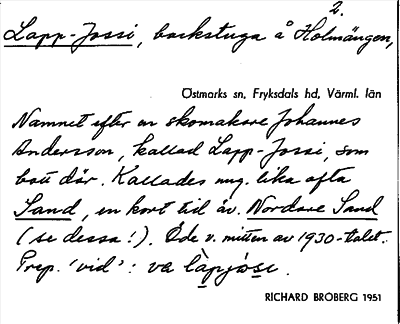 2.
Lapp-Jossi, backstuga å Holmängen,
Östmarks sn, Fryksdals hd, Värml. län
Namnet efter en skomakare Johannes
Andersson, kallad Lapp-Jossi, som
bott där. Kallades mug. lika ofta
Sand, en kort tid äv. Nordare Sand
(se dessa!). Öde v. mitten av 1930-talet.
Prep. 'vid': va làpjòsi.
RICHARD BROBERG 1951